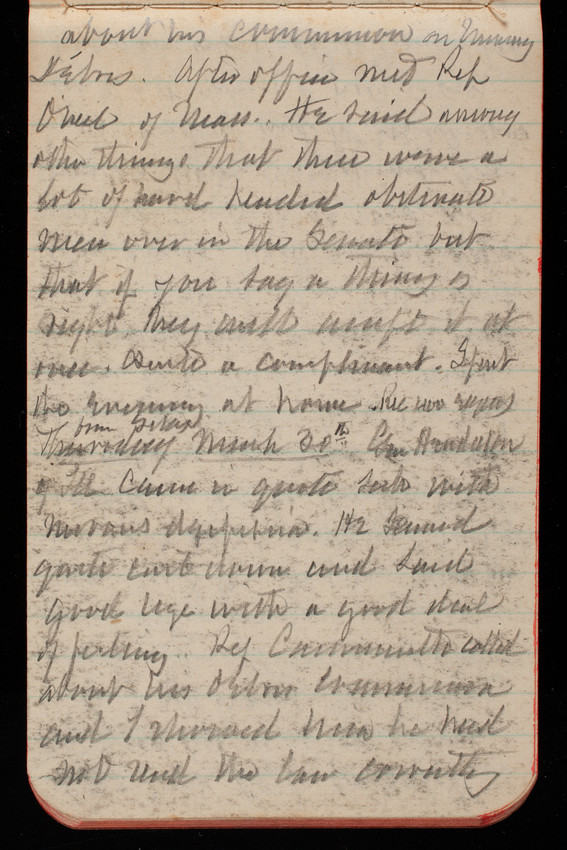 about his commission on Survey
Debris. After office met Rep
O'Neil of Mass. He said among
other things that there were a
lot of hard headed obstinate
men over in the Senate but
that if you say a thing is
right, they will accept it at
once. Quite a compliment. Spent
the evening at home. Rec 100 cigars
from Silas
Thursday March 20th. Gen Henderson
of Ill came in quite sick with
nervous dyspepsia. He seemed
quite cast down and said
good bye with a good deal
of feeling. Rep Caruth called
about his Debris Commission
and I showed him he had
not read the law correctly